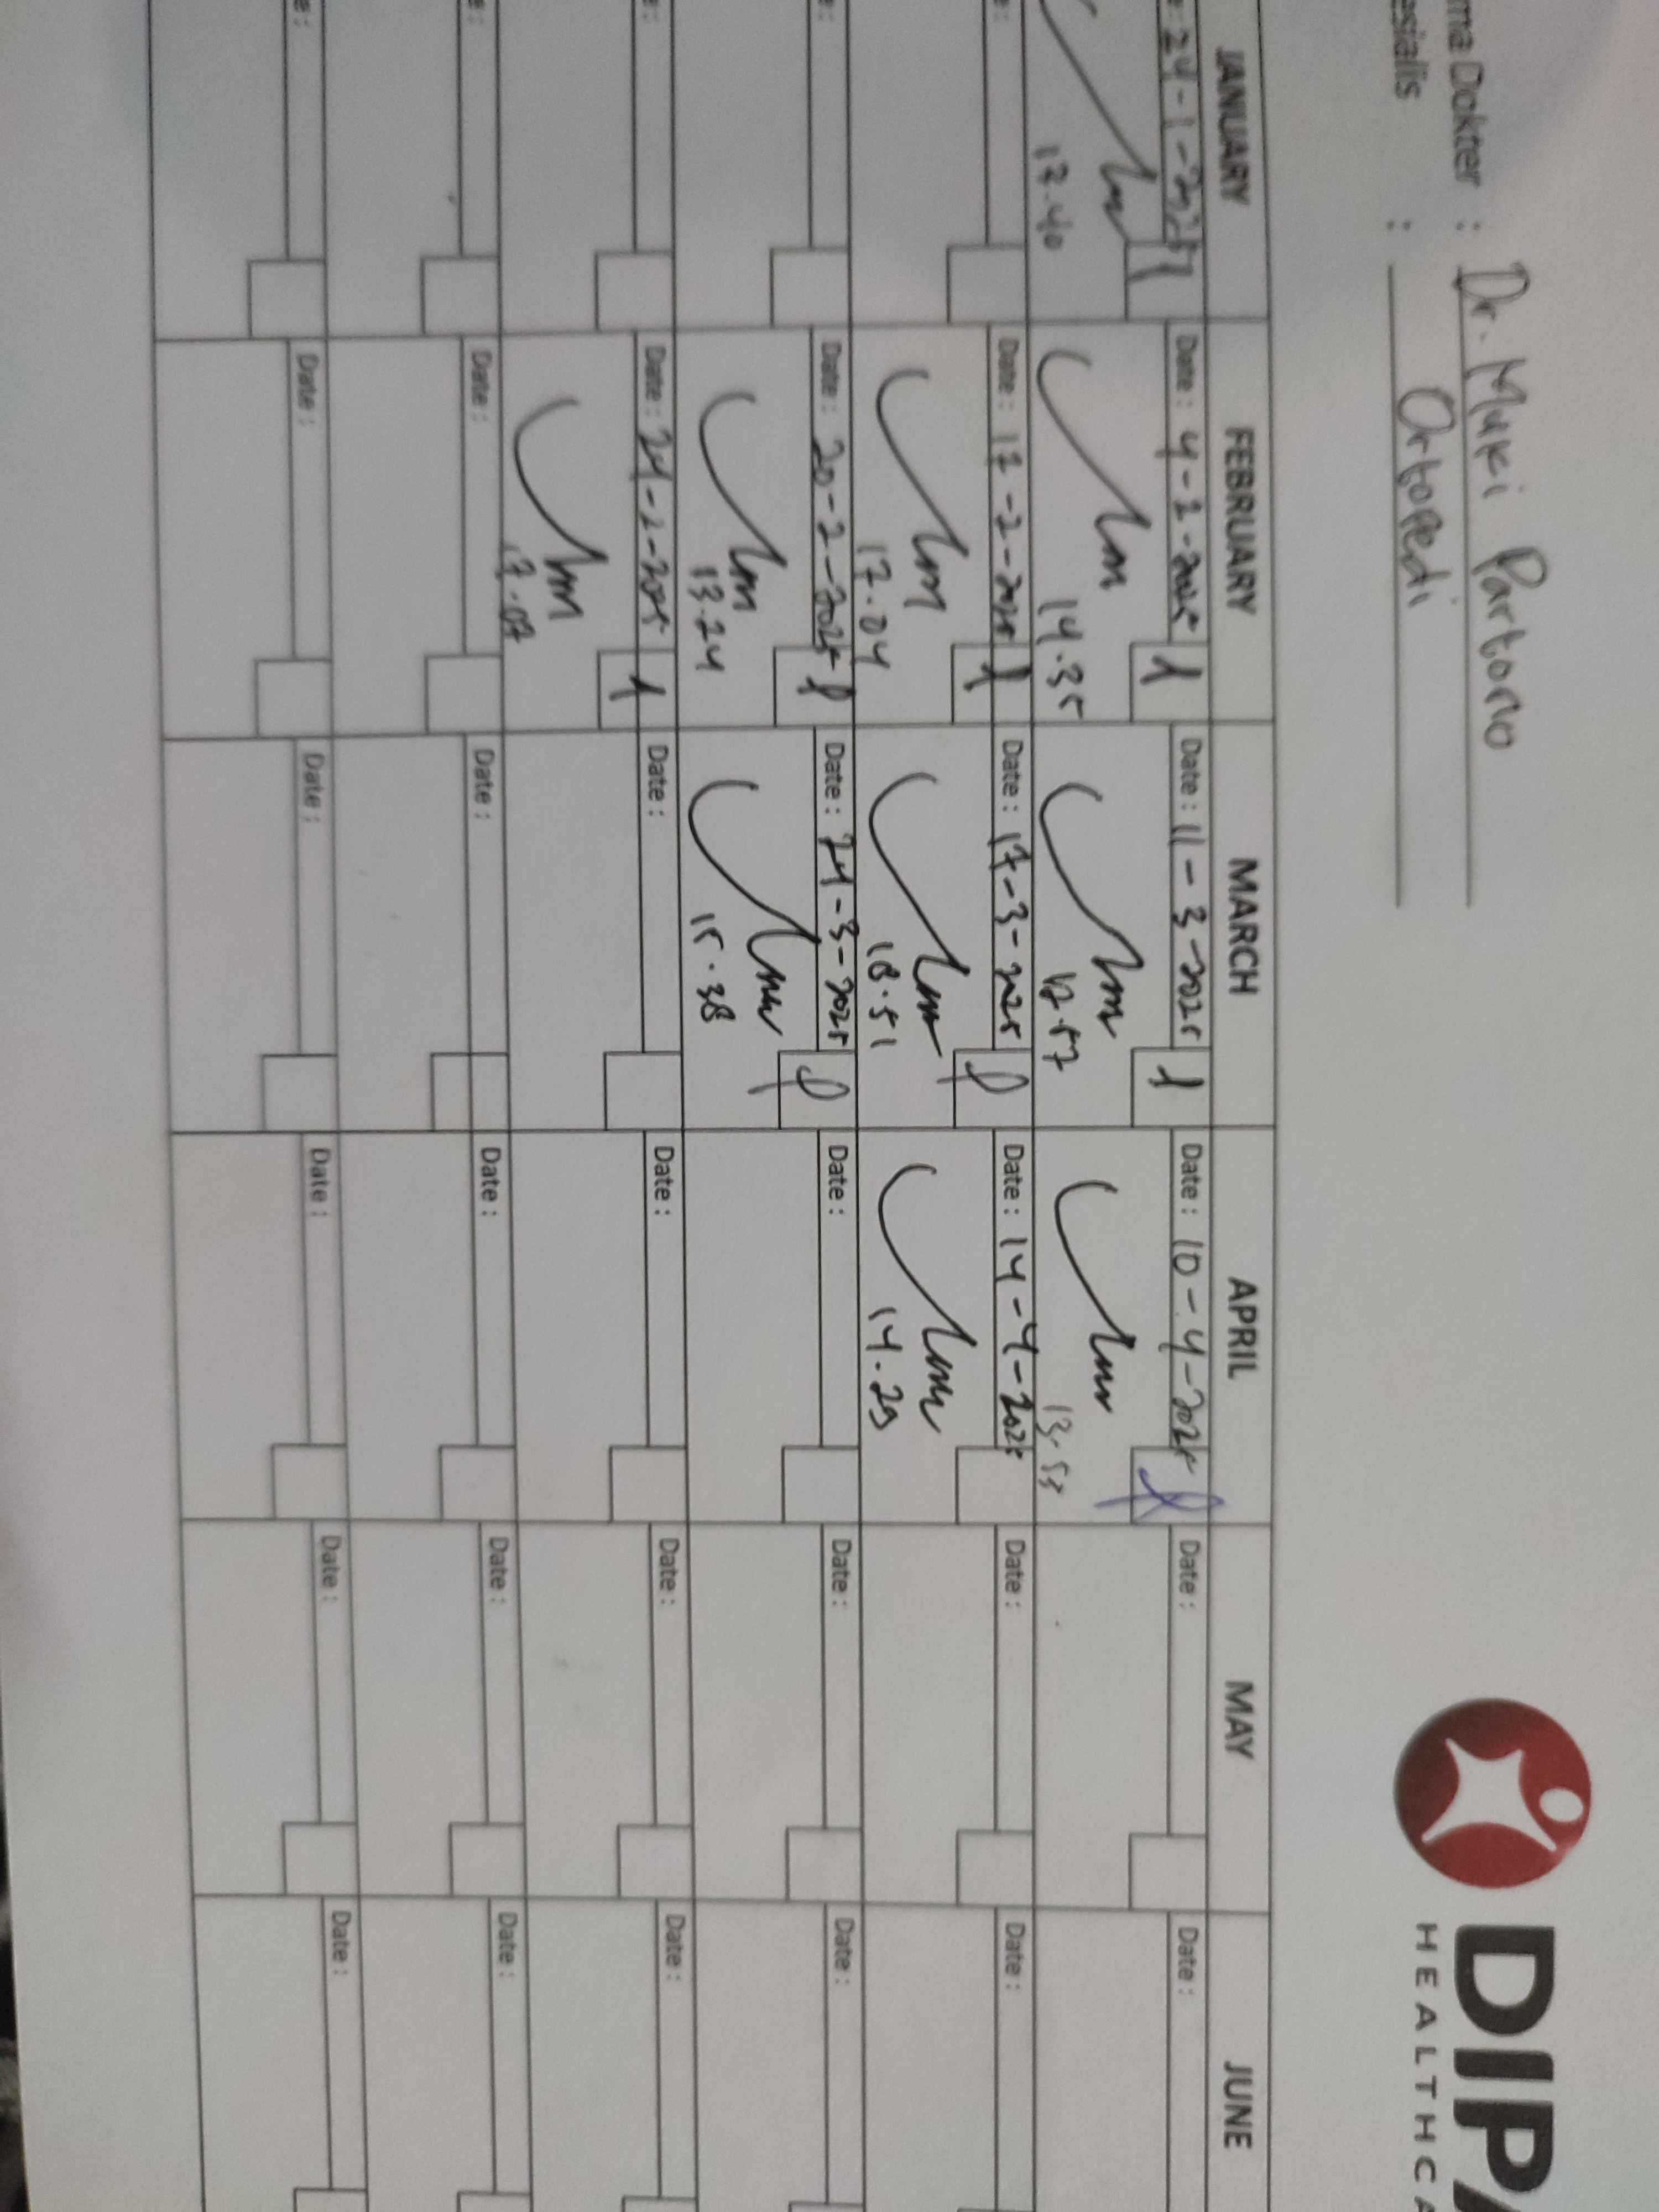 DIPA
HEALTHCA
ma Dokter : Dr. Muki Partono
esialis : Ortopedi
JANUARY FEBRUARY MARCH APRIL MAY JUNE
e: 24-1-2025 1 Date: 4-2-2025 1 Date: 11-3-2025 1 Date: 10-4-2025 Date: Date:
17.40 14.35 17.57 13.53
e: Date: 17-2-2025 1 Date: 17-3-2025 Date: 14-4-2025 Date: Date:
17.04 18.51 14.29
e: Date: 20-2-2025 Date: 24-3-2025 Date: Date: Date:
13.24 15.38
e: Date: 24-2-2025 1 Date: Date: Date: Date:
17.07
e: Date: Date: Date: Date: Date:
e: Date: Date: Date: Date: Date: